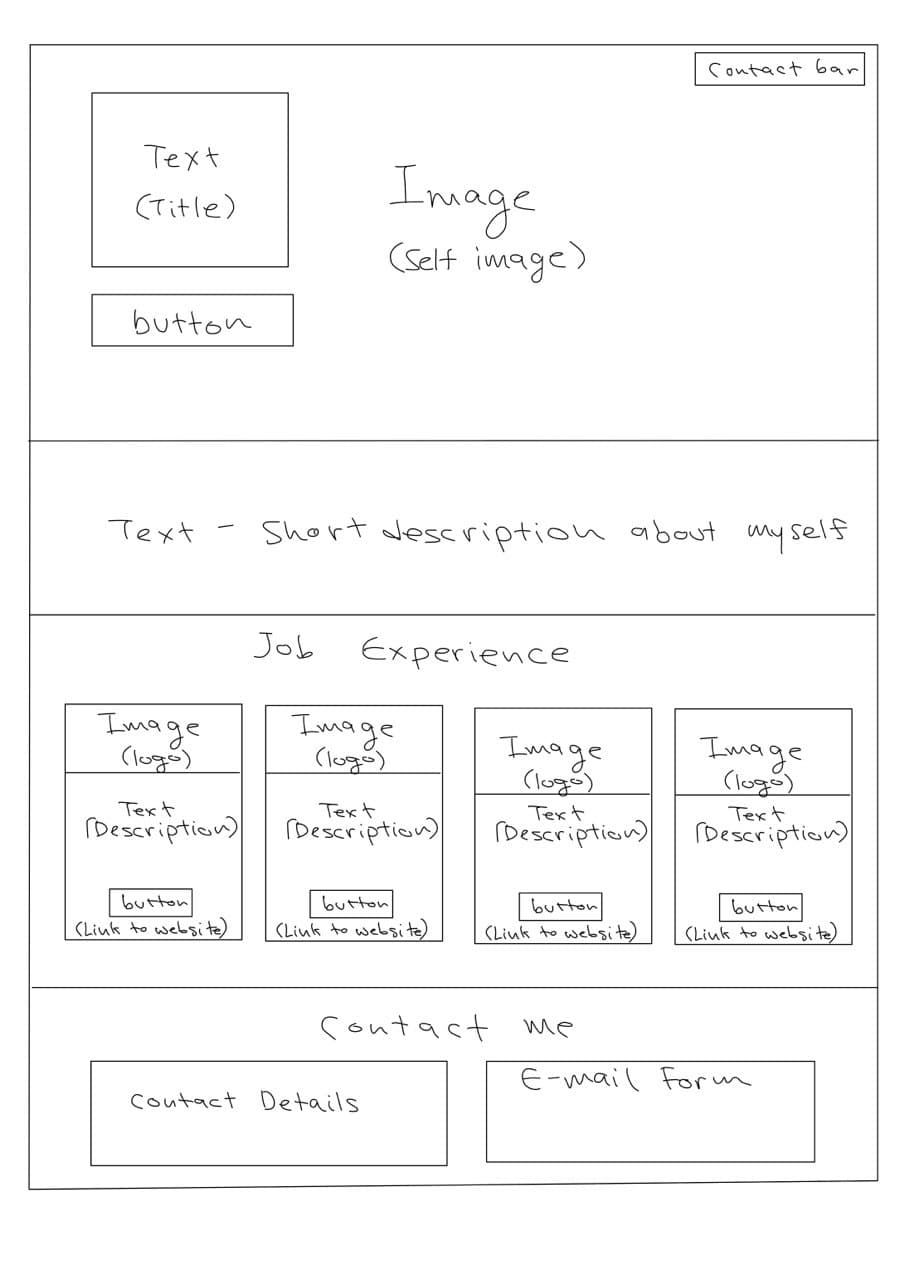 Contact bar
Text
(Title)
Image
(Self image)
button
Text - Short description about myself
Job Experience
Image
(logo)
Text
(Description)
button
(Link to website)
Image
(logo)
Text
(Description)
button
(Link to website)
Image
(logo)
Text
(Description)
button
(Link to website)
Image
(logo)
Text
(Description)
button
(Link to website)
Contact me
Contact Details
E-mail Form